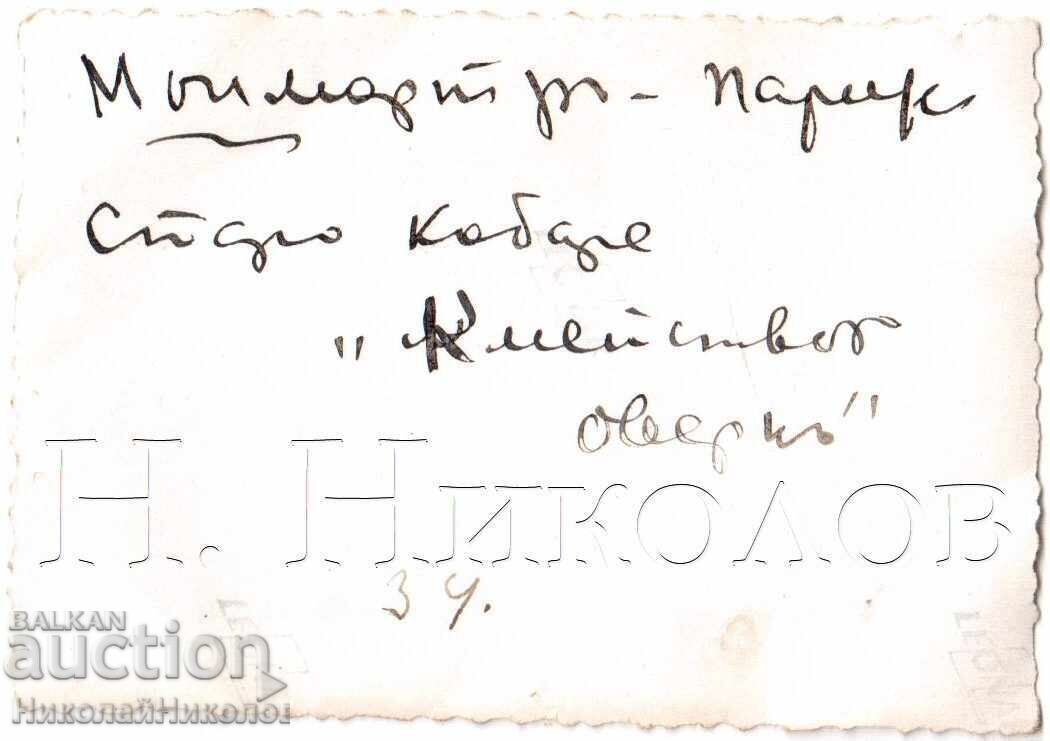 Монмартръ - Париж
Старо кабаре
"Кметството
овернъ"
Н. Николов
34.
BALKAN
auction
НиколайНиколов